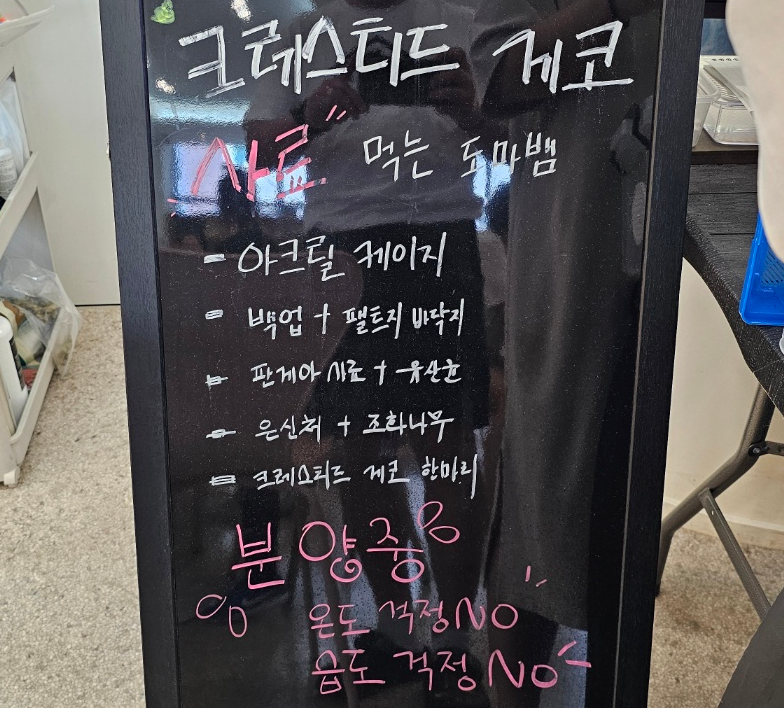 크레스티드 게코
사료" 먹는 도마뱀
- 아크릴 케이지
- 백업 + 팰트지 바닥지
- 판게아 사료 + 유산균
- 은신처 + 조화나무
- 크레스티드 게코 한마리
분양중
온도 걱정 NO
습도 걱정 NO